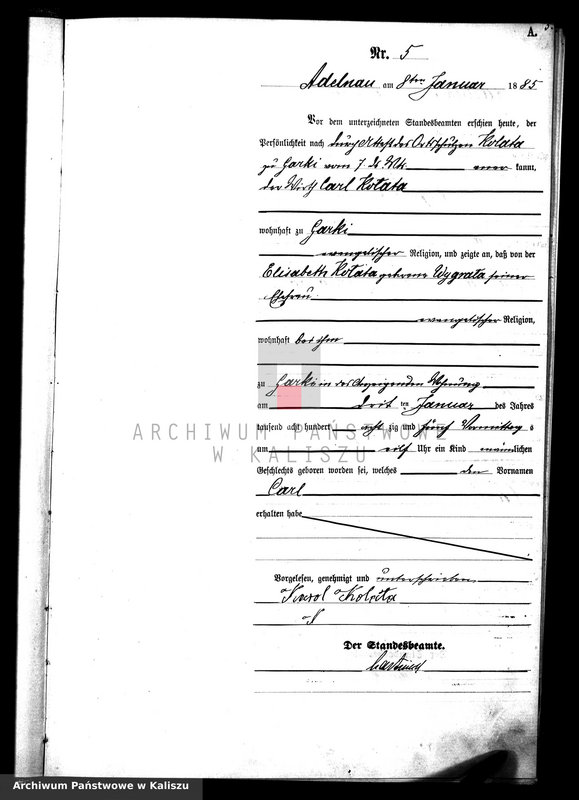 A.
Nr. 5
Adelnau am 8ten Januar 1885
Vor dem unterzeichneten Standesbeamten erschien heute, der
Persönlichkeit nach durch Attest des Ortsschulzen Kolata
zu Garki vom 7. ds. Mts. aner kannt,
der Wirth Carl Kolata
wohnhaft zu Garki
evangelischer Religion, und zeigte an, daß von der
Elisabeth Kolata geborene Wygrata seiner
Ehefrau
evangelischer Religion,
wohnhaft bei ihm
zu Garki in des Anzeigenden Wohnung
am drit ten Januar des Jahres
tausend acht hundert acht zig und fünf Vormittag s
um eilf Uhr ein Kind männlichen
Geschlechts geboren worden sei, welches den Vornamen
Carl
erhalten habe
Vorgelesen, genehmigt und unterschrieben
Karol Kolata
Der Standesbeamte.
ARCHIWUM PAŃSTWOWE
W KALISZU
Archiwum Państwowe w Kaliszu